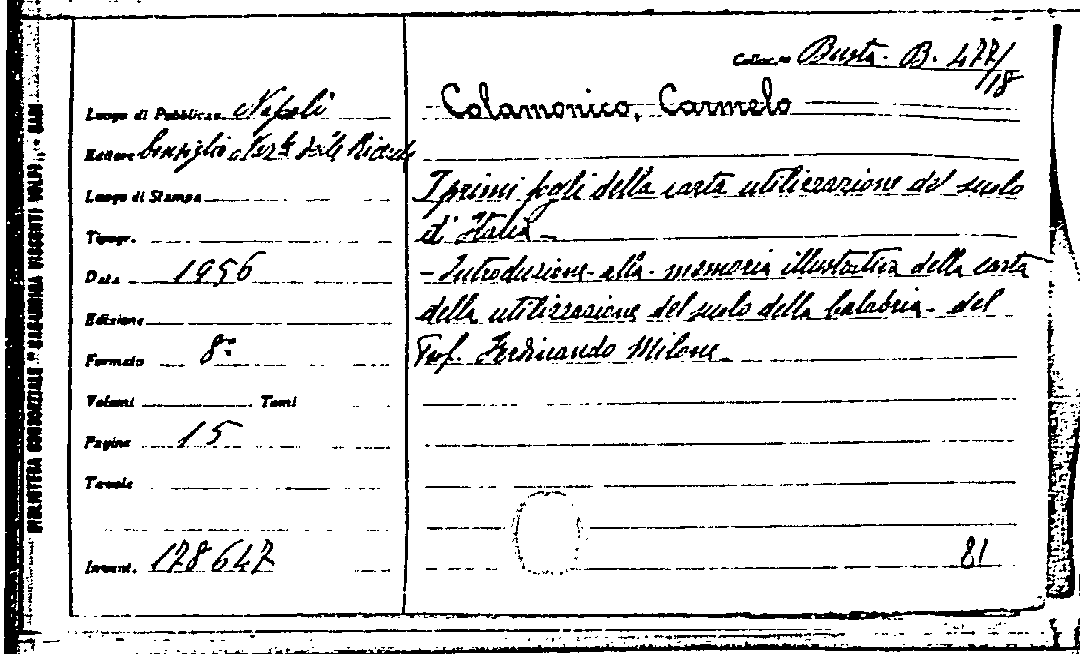 BIBLIOTECA CONSORZIALE "SAGARRIGA VISCONTI VOLPI" - BARI
Colloc.ne Busta. B. 477/
18
Luogo di Pubblicaz. Napoli
Editore Consiglio Naz.le delle Ricerche
Luogo di Stampa
Tipogr.
Data 1956
Edizione
Formato 8°
Volumi Tomi
Pagine 15
Tavole
Invent. 178647
Colamonico, Carmelo
I primi fogli della carta utilizzazione del suolo
d'Italia -
- Introduzione alla memoria illustrativa della carta
della utilizzazione del suolo della Calabria - del
Prof. Ferdinando Milone
81